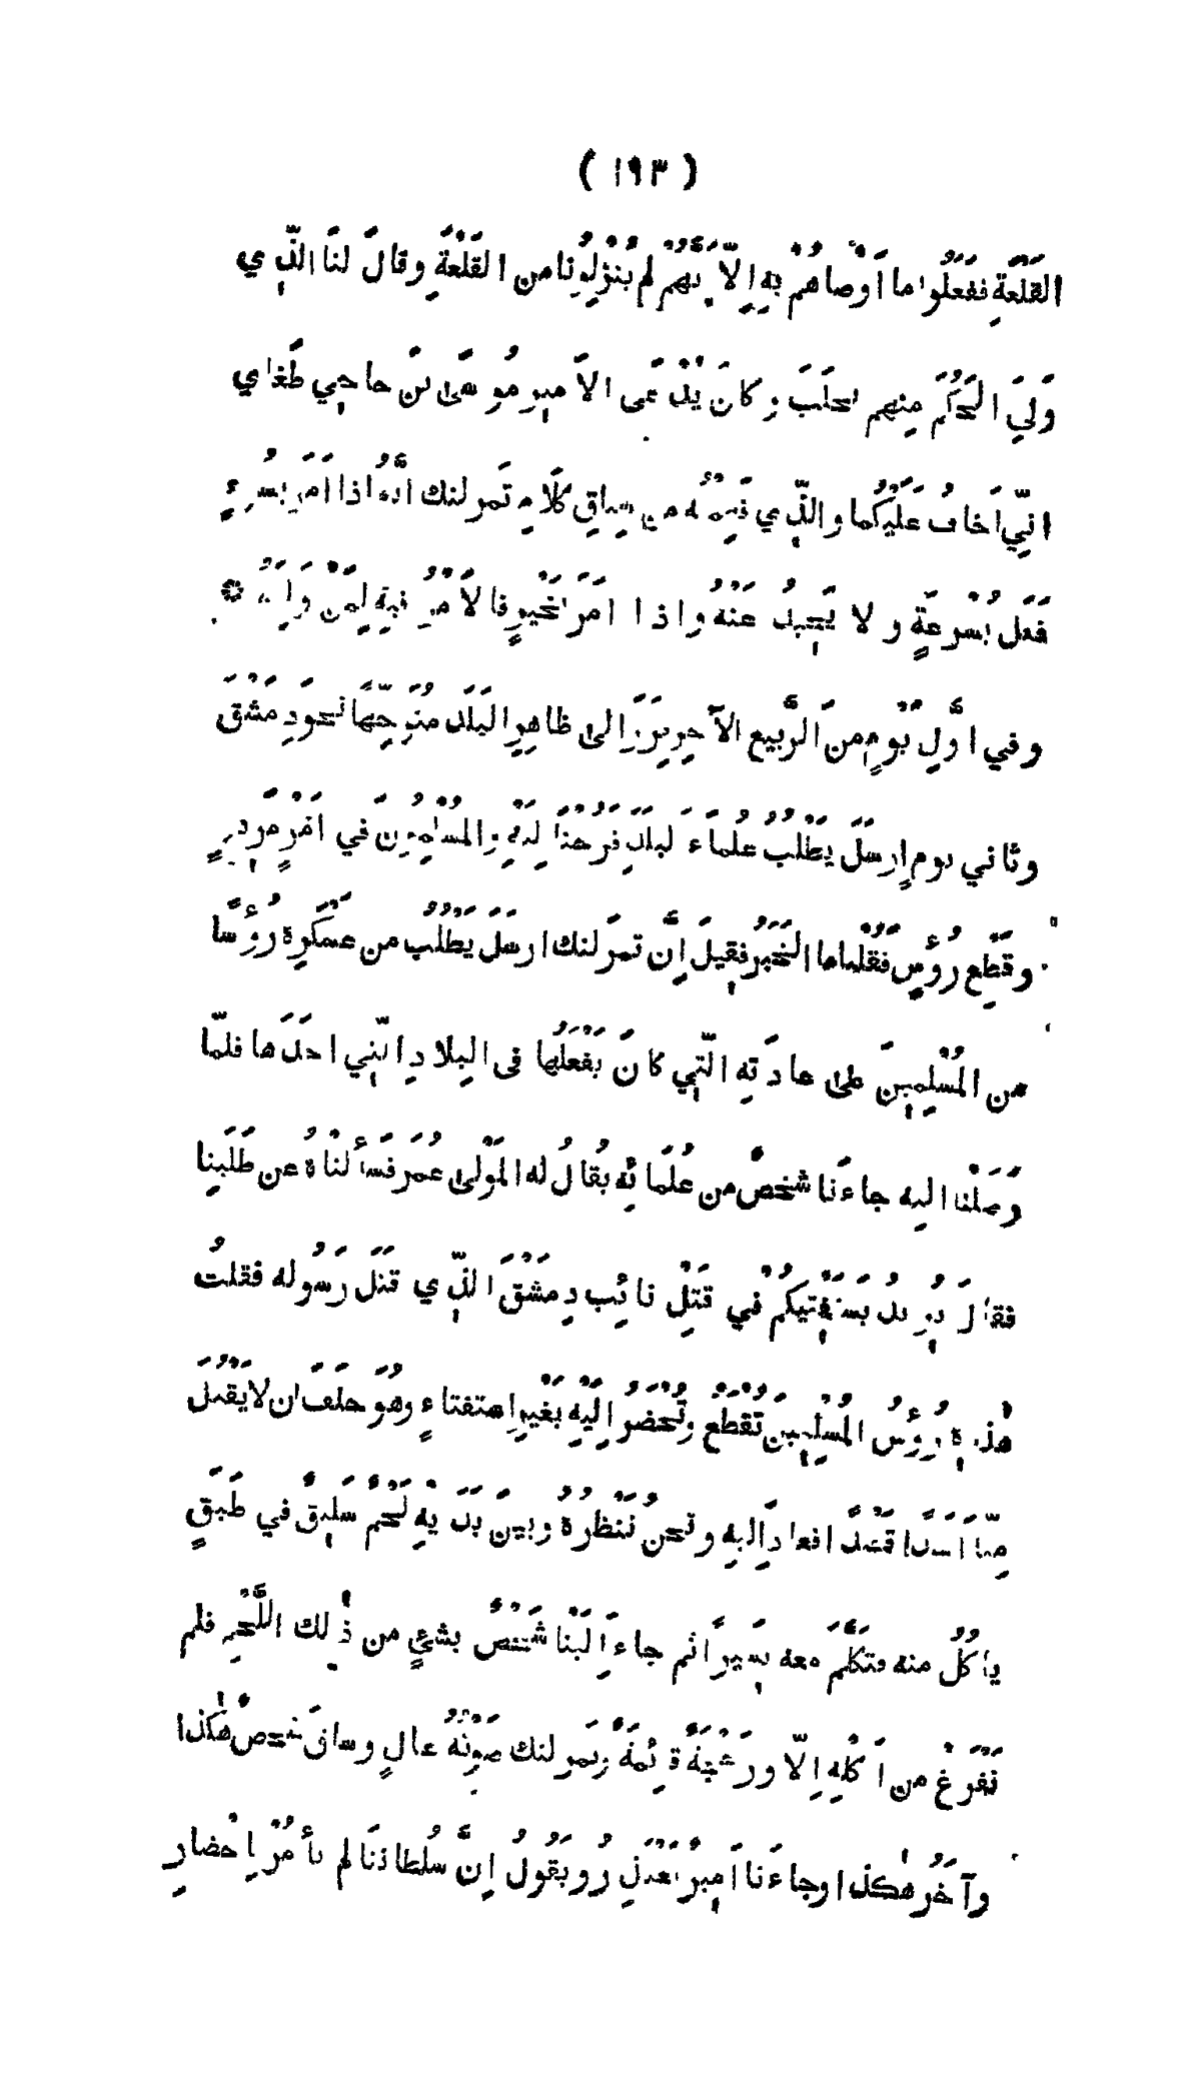 ( ١٩٣ )
القَلْعَةِ ففَعَلُوا ما اَوْصاهُمْ بِهِ اِلّا اَنَّهُمْ لم يُنْزِلُونا من القَلْعَةِ وقالَ لنَا الّذِي
وَلِيَ الحُكْمَ مِنهم بحلَبَ وكانَ يُدْعَى الاَميرِ مُوسَى بْنَ حاجِي طَغاي
انِّي اَخافُ عَلَيْكُما والّذِي فَهِمْتُه من سِياقِ كَلَامِ تَمرلنك اَنَّهُ اذا اَمَرَ بسُوءٍ
فَعَل بسُرْعَةٍ ولا يَحِيدُ عَنْهُ واذا اَمَرَ بخَيْرٍ فالاَمْرُ فيهِ لِمَنْ وَلِيَهُ *
وفي اوَّلِ يَوْمٍ من الرَّبيع الآخِرِ بَرَزَ الى ظاهِرِ البَلَدِ مُتَوجِّهًا نحوَ دِمَشْقَ
وثاني يوم اِرسَلَ يَطْلُبُ عُلماءَ لبلَدِ فَرُحْنَا اِلَيْهِ والمُسْلِمُونَ في اَمْرٍ مَرِيجٍ
وقَطْعِ رُؤُسٍ فقُلْنا ما الخَبَرُ فقِيلَ اِنَّ تمرلنك ارسَلَ يَطْلُبُ من عَسْكَرِهِ رُؤُسًا
من المُسْلِمينَ على عادَتِه الّتِي كانَ يَفْعَلُها فى البِلادِ الّتِي اخَذَها فلمّا
وَصَلْنا اليه جاءَنا شخصٌ من عُلَمائِه يُقالُ له المَوْلى عُمَر فسَأَلناهُ عن طَلَبِنا
فقالَ يُرِيدُ يَسْتَفْتِيكُمْ في قَتْلِ نائِبِ دِمَشْقَ الّذِي قتَلَ رَسُوله فقلتُ
هٰذِهِ رُؤُسُ المُسْلِمِينَ تُقْطَعُ وتُحْضَرُ اِلَيْهِ بغَيْرِ استفتاءٍ وهُوَ حلَفَ ان لا يَقْتُلَ
مِنّا اَحَدًا قَتْلًا فعادَ اِليهِ ونحنُ نَنْظُرُهُ وبينَ يَدَيْهِ لَحْمٌ سَلِيقٌ في طَبَقٍ
ياكُلُ منه فتكَلَّمَ معه يَسِيرًا ثم جاءَ اِلَيْنَا شَخْصٌ بشئٍ من ذٰلك اللَّحْمِ فلم
نَفْرَغْ من اَكْلِهِ اِلّا ورَهْجَةٌ قائِمةٌ وتمرلنك صَوْتُهُ عالٍ وساقَ شخصٌ هٰكذا
وآخَرُ هٰكذا وجاءَنا اَمِيرٌ يَعْتَذِرُ ويَقُولُ اِنَّ سُلطانَنَا لم يأمُرْ باِحْضارِ